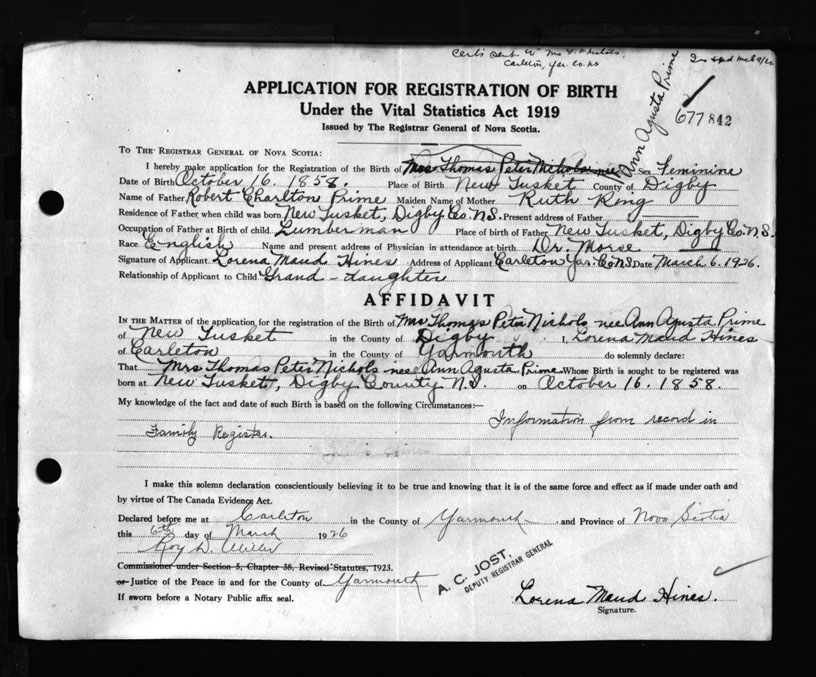 Certs sent to Mrs T. P. Nichols
Carleton, Yar. Co. NS
APPLICATION FOR REGISTRATION OF BIRTH
Under the Vital Statistics Act 1919
Issued by The Registrar General of Nova Scotia.
677842
Ann Agusta Prime
TO THE REGISTRAR GENERAL OF NOVA SCOTIA:
I hereby make application for the Registration of the Birth of Mrs Thomas Peter Nichols nee Sex Feminine
Date of Birth October 16. 1858. Place of Birth New Tusket County of Digby
Name of Father Robert Charlton Prime Maiden Name of Mother Ruth Ring
Residence of Father when child was born New Tusket, Digby Co. N.S. Present address of Father
Occupation of Father at Birth of child Lumberman Place of birth of Father New Tusket, Digby Co. N.S.
Race English Name and present address of Physician in attendance at birth Dr. Morse
Signature of Applicant Lorena Maud Hines Address of Applicant Carleton Yar. Co. N.S. Date March 6. 1926.
Relationship of Applicant to Child Grand-daughter
AFFIDAVIT
IN THE MATTER of the application for the registration of the Birth of Mrs Thomas Peter Nichols nee Ann Agusta Prime
of New Tusket in the County of Digby I, Lorena Maud Hines
of Carleton in the County of Yarmouth do solemnly declare:
That Mrs Thomas Peter Nichols nee Ann Agusta Prime Whose Birth is sought to be registered was
born at New Tusket, Digby County N.S. on October 16. 1858.
My knowledge of the fact and date of such Birth is based on the following Circumstances:—
Information from record in
Family Register.
I make this solemn declaration conscientiously believing it to be true and knowing that it is of the same force and effect as if made under oath and
by virtue of The Canada Evidence Act.
Declared before me at Carleton in the County of Yarmouth and Province of Nova Scotia
this 6th day of March 1926
Roy D.
Commissioner under Section 5, Chapter 38, Revised Statutes, 1923.
or Justice of the Peace in and for the County of Yarmouth
If sworn before a Notary Public affix seal.
A. C. JOST,
DEPUTY REGISTRAR GENERAL
Lorena Maud Hines.
Signature.